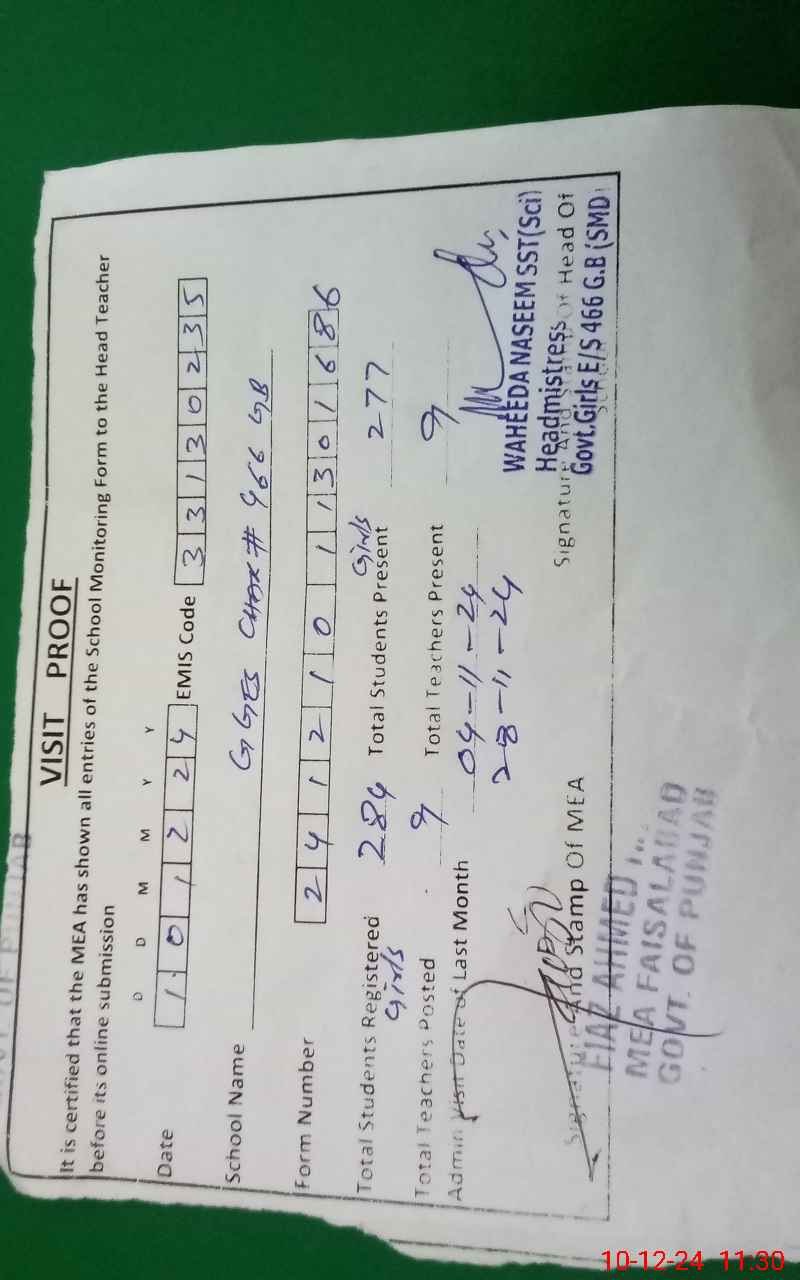 VISIT PROOF
It is certified that the MEA has shown all entries of the School Monitoring Form to the Head Teacher
before its online submission
D D M M Y Y
Date 1 0 1 2 2 4 EMIS Code 3 3 1 3 0 2 3 5
School Name GGES CHAK # 466 GB
Form Number 2 4 1 2 1 0 1 1 3 0 1 6 8 6
Total Students Registered 284 Total Students Present 277
Girls Girls
Total Teachers Posted 9 Total Teachers Present 9
Admin Visit Date of Last Month 04-11-24
28-11-24
Signature And Stamp Of MEA
EJAZ AHMED
MEA FAISALABAD
GOVT. OF PUNJAB
WAHEEDA NASEEM SST(Sci)
Headmistress
Govt.Girls E/S 466 G.B (SMD
Signature And Stamp Of Head Of
School
10-12-24 11:30